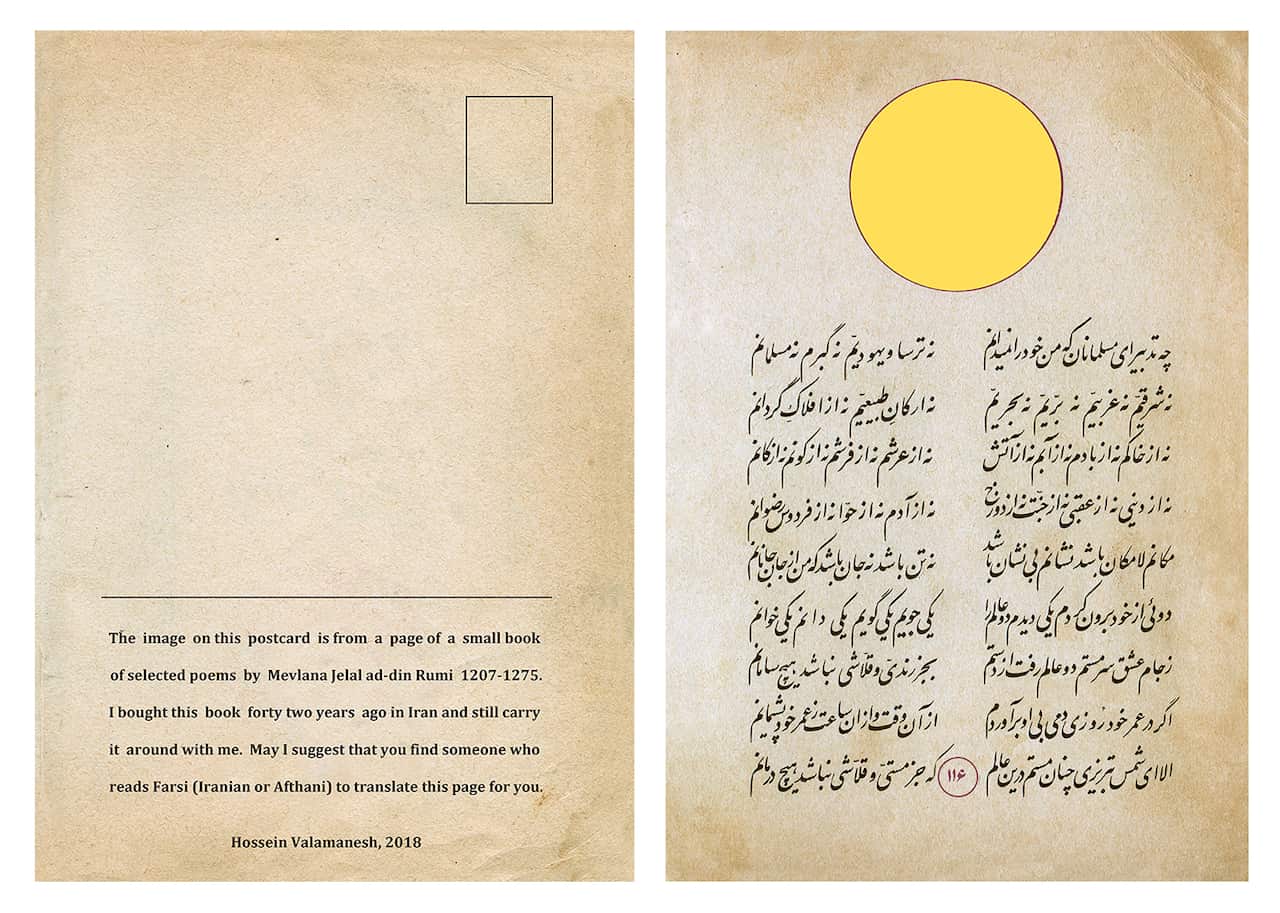 The image on this postcard is from a page of a small book
of selected poems by Mevlana Jelal ad-din Rumi 1207-1275.
I bought this book forty two years ago in Iran and still carry
it around with me. May I suggest that you find someone who
reads Farsi (Iranian or Afthani) to translate this page for you.
Hossein Valamanesh, 2018
چه تدبیر ای مسلمانان که من خود را نمیدانم نه ترسا و یهودیّم نه گبرم نه مسلمانم
نه شرقیّم نه غربیّم نه برّیّم نه بحریّم نه ارکانِ طبیعیّم نه از افلاکِ گردانم
نه از خاکم نه از بادم نه از آبم نه از آتش نه از عرشم نه از فرشم نه از کونم نه از کانم
نه از دنیی نه از عقبی نه از جنّت نه از دوزخ نه از آدم نه از حوّا نه از فردوس رضوانم
مکانم لامکان باشد نشانم بی نشان باشد نه تن باشد نه جان باشد که من از جان جانانم
دوئی از خود برون کردم یکی دیدم دو عالم را یکی جویم یکی گویم یکی دانم یکی خوانم
زجام عشق سرمستم دو عالم رفت از دستم بجز رندیّ و قلّاشی نباشد هیچ سامانم
اگر در عمر خود روزی دمی بی او برآوردم از آن وقت و از آن ساعت زعمر خود پشیمانم
الا ای شمس تبریزی چنان مستم درین عالم ۱۱۶ که جز مستیّ و قلّاشی نباشد هیچ درمانم